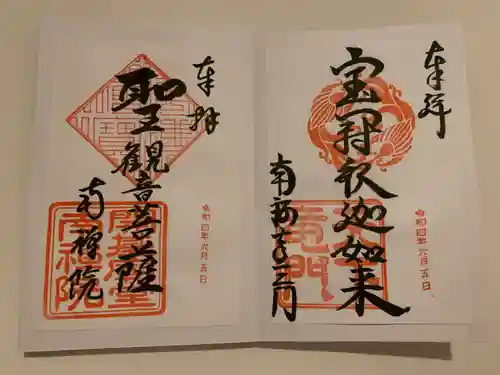 奉拝
宝冠釈迦如来
南禅寺三門
令和四年六月五日
奉拝
聖観音菩薩
南禅院
令和四年六月五日